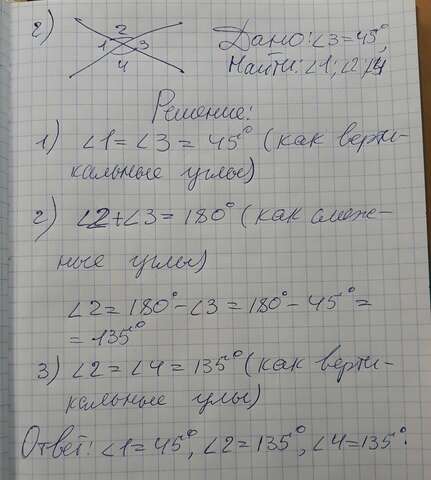 2) 1 2 3 4 Дано: ∠3 = 45°,
Найти: ∠1; ∠2; ∠4
Решение:
1) ∠1 = ∠3 = 45° (как верти-
кальные углы)
2) ∠2 + ∠3 = 180° (как смеж-
ные углы)
∠2 = 180° - ∠3 = 180° - 45° =
= 135°
3) ∠2 = ∠4 = 135° (как верти-
кальные улы)
Ответ: ∠1 = 45°, ∠2 = 135°, ∠4 = 135°.